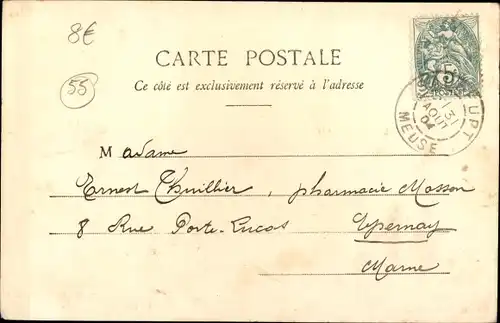 8€
55
CARTE POSTALE
Ce côté est exclusivement réservé à l'adresse
5
UPT
31
AOUT
04
MEUSE
Madame
Ernest Thuillier, pharmacie Mosson
8 Rue Porte-Lucas Epernay
Marne